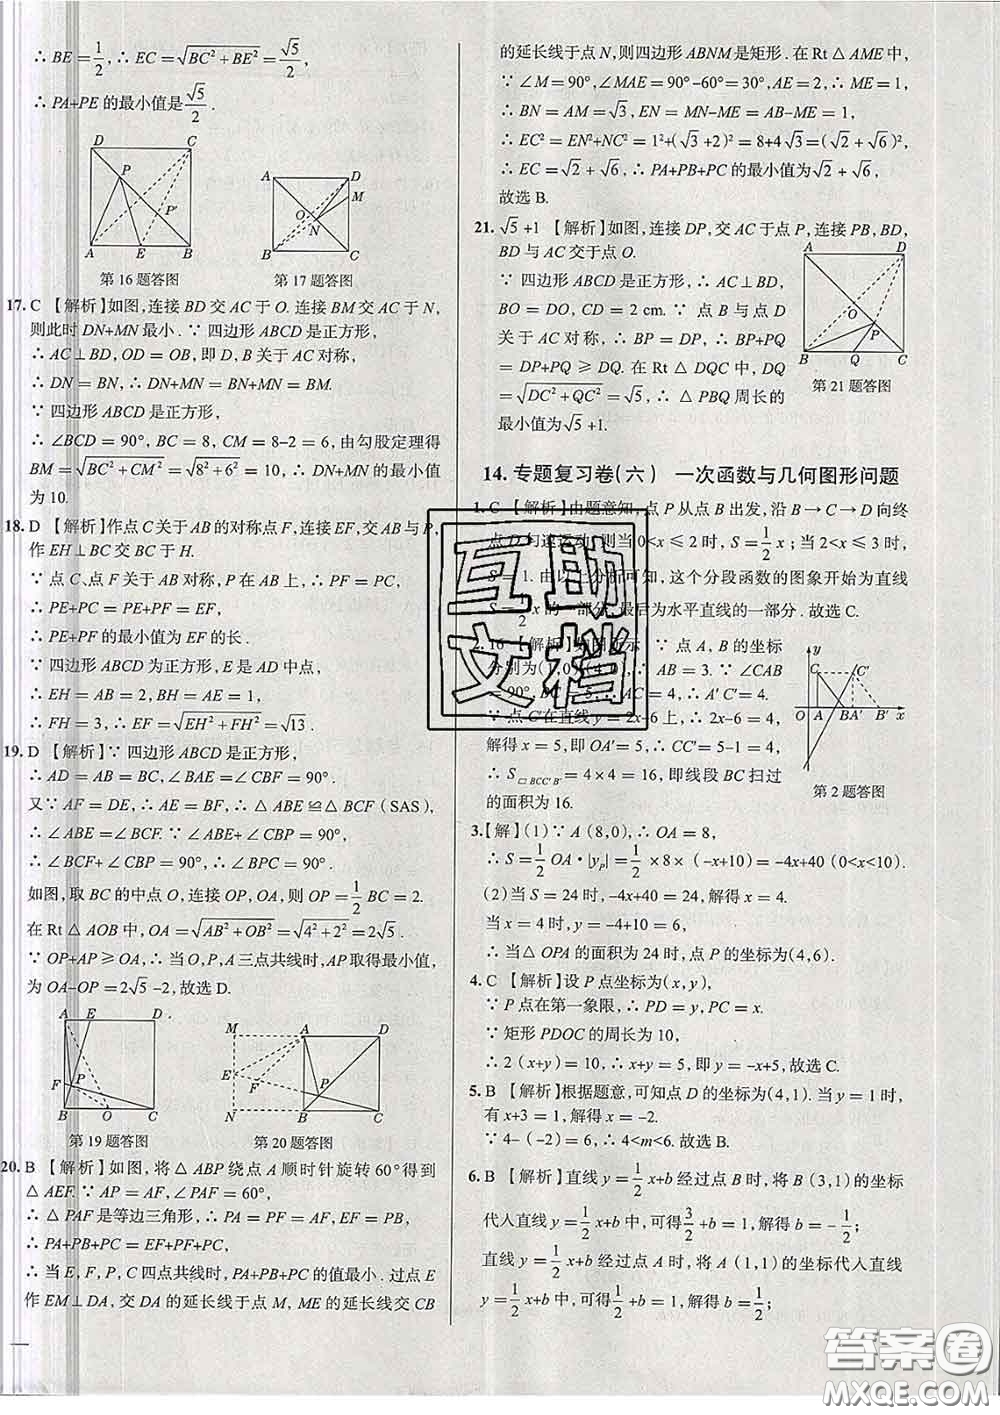 ∴ BE = 1/2, ∴ EC = √(BC² + BE²) = √5/2,
∴ PA+PE 的最小值是 √5/2.
D C P P' A E B
第16题答图
A D M O N B C
第17题答图
17. C 【解析】如图,连接 BD 交 AC 于 O. 连接 BM 交 AC 于 N,
则此时 DN+MN 最小. ∵ 四边形 ABCD 是正方形,
∴ AC⊥BD, OD = OB, 即 D, B 关于 AC 对称,
∴ DN = BN, ∴ DN+MN = BN+MN = BM.
∵ 四边形 ABCD 是正方形,
∴ ∠BCD = 90°, BC = 8, CM = 8-2 = 6, 由勾股定理得
BM = √(BC² + CM²) = √(8² + 6²) = 10. ∴ DN+MN 的最小值
为 10.
18. D 【解析】作点 C 关于 AB 的对称点 F, 连接 EF, 交 AB 与 P,
作 EH⊥BC 交 BC 于 H.
∵ 点 C、点 F 关于 AB 对称, P 在 AB 上, ∴ PF = PC,
∴ PE+PC = PE+PF = EF,
∴ PE+PF 的最小值为 EF 的长.
∵ 四边形 ABCD 为正方形, E 是 AD 中点,
∴ EH = AB = 2, BH = AE = 1,
∴ FH = 3, ∴ EF = √(EH² + FH²) = √13.
19. D 【解析】∵ 四边形 ABCD 是正方形,
∴ AD = AB = BC, ∠BAE = ∠CBF = 90°.
又∵ AF = DE, ∴ AE = BF, ∴ △ABE ≌ △BCF (SAS),
∴ ∠ABE = ∠BCF. ∵ ∠ABE+∠CBP = 90°,
∴ ∠BCF+ ∠CBP = 90°, ∴ ∠BPC = 90°.
如图, 取 BC 的中点 O, 连接 OP, OA, 则 OP = 1/2 BC = 2.
在 Rt△AOB 中, OA = √(AB² + OB²) = √(4² + 2²) = 2√5.
∵ OP+AP ≥ OA, ∴ 当 O, P, A 三点共线时, AP 取得最小值,
为 OA-OP = 2√5 -2, 故选 D.
A E D F P B O C
第19题答图
M A D E F P N B C
第20题答图
20. B 【解析】如图, 将 △ABP 绕点 A 顺时针旋转 60°得到
△AEF. ∵ AP = AF, ∠PAF = 60°,
∴ △PAF 是等边三角形, ∴ PA = PF = AF, EF = PB,
∴ PA+PB+PC = EF+PF+PC.
∴ 当 E, F, P, C 四点共线时, PA+PB+PC 的值最小. 过点 E
作 EM⊥DA, 交 DA 的延长线于点 M, ME 的延长线交 CB
的延长线于点 N, 则四边形 ABNM 是矩形. 在 Rt△AME 中,
∵ ∠M = 90°, ∠MAE = 90°-60° = 30°, AE = 2, ∴ ME = 1,
∴ BN = AM = √3, EN = MN-ME = AB-ME = 1,
∴ EC² = EN²+NC² = 1²+(√3 +2)² = 8+4√3 = (√2 + √6)²,
∴ EC = √2 + √6, ∴ PA+PB+PC 的最小值为√2 + √6,
故选 B.
21. √5 +1 【解析】如图, 连接 DP, 交 AC 于点 P, 连接 PB, BD,
BD 与 AC 交于点 O.
∵ 四边形 ABCD 是正方形, ∴ AC⊥BD,
BO = DO, CD = 2 cm. ∵ 点 B 与点 D
关于 AC 对称, ∴ BP = DP, ∴ BP+PQ
= DP+PQ ≥ DQ. 在 Rt△DQC 中, DQ
= √(DC² + QC²) = √5, ∴ △PBQ 周长的
最小值为√5 +1.
A D O P B Q C
第21题答图
14. 专题复习卷(六) 一次函数与几何图形问题
1. C 【解析】由题意知, 点 P 从点 B 出发, 沿 B→C→D 向终
点 D 匀速运动, 则当 0<x≤2 时, S = 1/2 x; 当 2<x≤3 时,
S = 1. 由以上分析可知, 这个分段函数的图象开始为直线
S = 1/2 x 的一部分, 最后为水平直线的一部分. 故选 C.
2. 16 【解析】如图所示. ∵ 点 A, B 的坐标
分别为(1,0), (4,0), ∴ AB = 3. ∵ ∠CAB
= 90°, BC = 5, ∴ AC = 4, ∴ A'C' = 4.
∵ 点 C'在直线 y = 2x-6 上, ∴ 2x-6 = 4,
解得 x = 5, 即 OA' = 5, ∴ CC' = 5-1 = 4,
∴ S▱BCC'B' = 4×4 = 16, 即线段 BC 扫过
的面积为 16.
y C C' O A BA' B' x
第2题答图
3. 【解】(1)∵ A (8,0), ∴ OA = 8,
∴ S = 1/2 OA·|yP| = 1/2 ×8× (-x+10) = -4x+40 (0<x<10).
(2) 当 S = 24 时, -4x+40 = 24, 解得 x = 4.
当 x = 4 时, y = -4+10 = 6,
∴ 当△OPA 的面积为 24 时, 点 P 的坐标为(4,6).
4. C 【解析】设 P 点坐标为(x,y),
∵ P 点在第一象限, ∴ PD = y, PC = x.
∵ 矩形 PDOC 的周长为 10,
∴ 2 (x+y) = 10, ∴ x+y = 5, 即 y = -x+5, 故选 C.
5. B 【解析】根据题意, 可知点 D 的坐标为(4,1). 当 y = 1 时,
有 x+3 = 1, 解得 x = -2.
∵ 4- (-2) = 6, ∴ 4<m<6. 故选 B.
6. B 【解析】直线 y = 1/2 x+b 经过点 B 时, 将 B (3,1) 的坐标
代入直线 y = 1/2 x+b 中, 可得 3/2 +b = 1, 解得 b = - 1/2;
直线 y = 1/2 x+b 经过点 A 时, 将 A (1,1) 的坐标代入直线
y = 1/2 x+b 中, 可得 1/2 +b = 1, 解得 b = 1/2;
互助
文档
答案圈
MXQE.COM